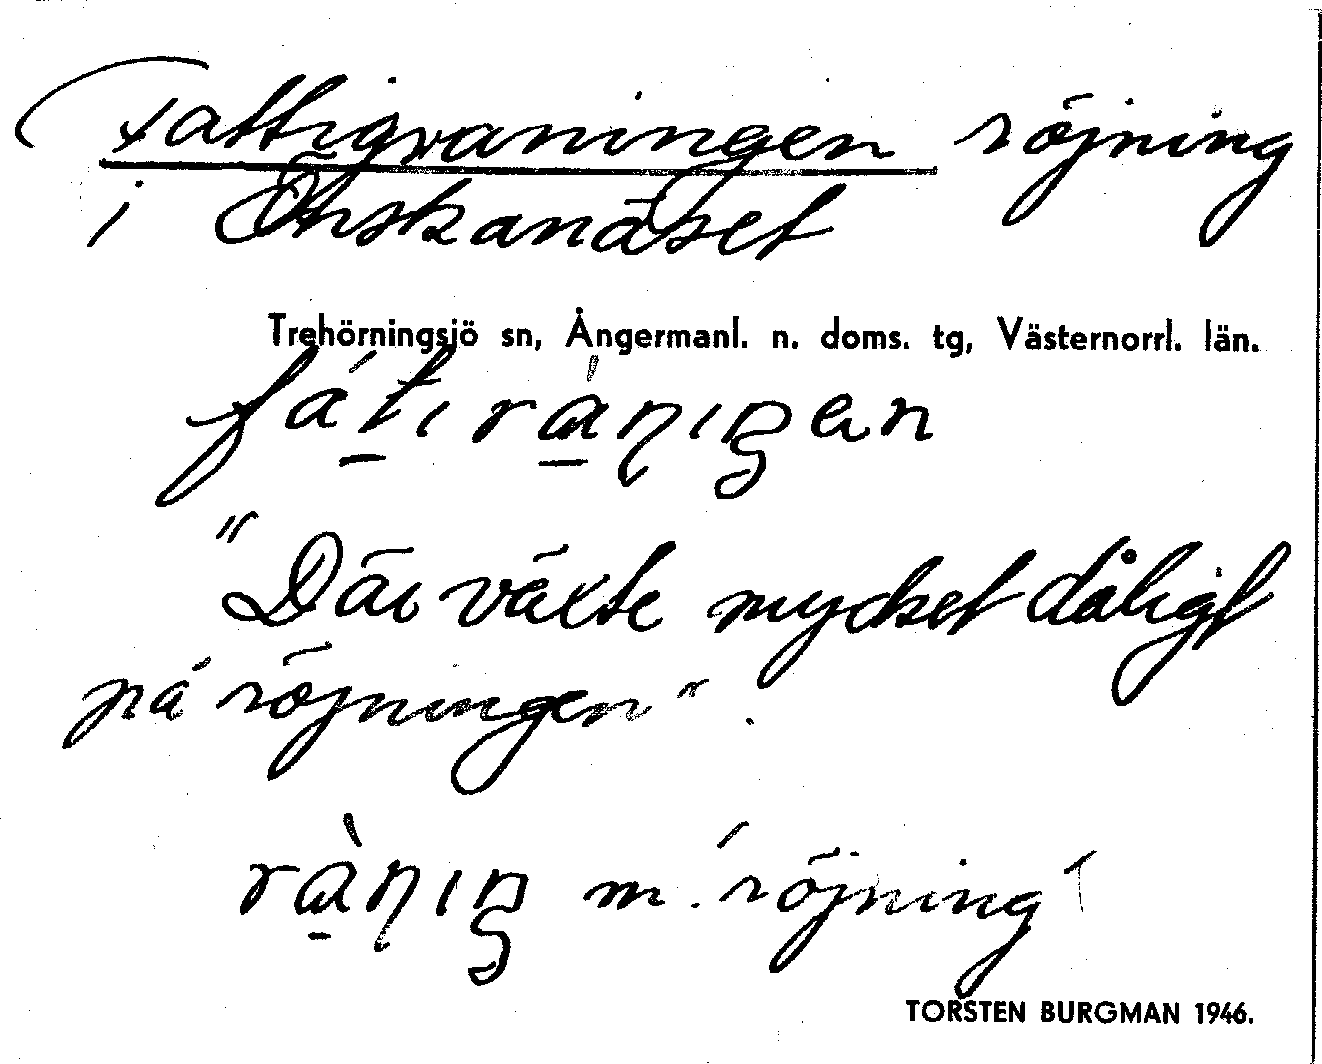 Fattigraningen röjning
i Önskanäset
Trehörningsjö sn, Ångermanl. n. doms. tg, Västernorrl. län.
"Där växte mycket dåligt
på röjningen".
m. 'röjning'
TORSTEN BURGMAN 1946.